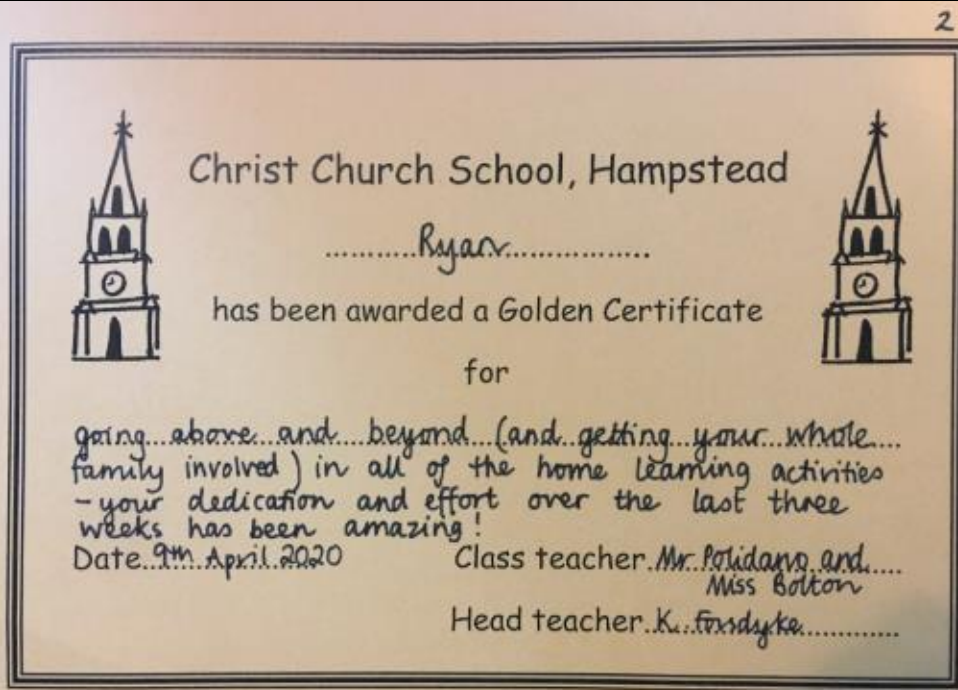 2
Christ Church School, Hampstead
Ryan
has been awarded a Golden Certificate
for
going above and beyond (and getting your whole
family involved) in all of the home learning activities
- your dedication and effort over the last three
weeks has been amazing!
Date 9th April 2020 Class teacher Mr Polidano and
Miss Bolton
Head teacher K. Forsdyke